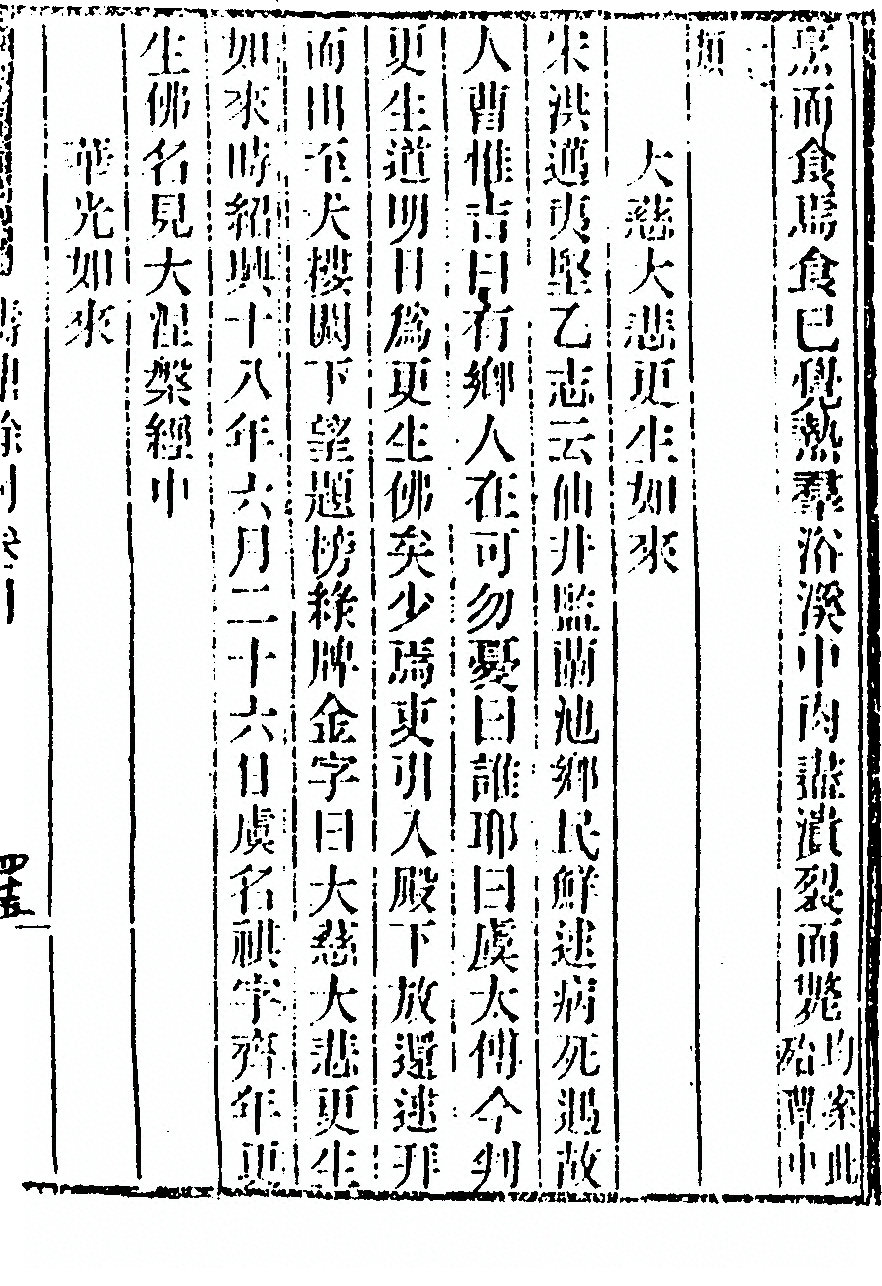 烹而食焉食已覺熱羣浴溪中肉盡潰裂而斃均案此殆蕈中
類
大慈大悲更生如來
宋洪邁夷堅乙志云仙井監蘭池鄉民鮮逑病死遇故
人曹惟吉曰有鄉人在可勿憂曰誰耶曰虞太傅今判
更生道明日爲更生佛矣少焉吏引入殿下放還逑拜
而出至大樓闕下望題榜綠牌金字曰大慈大悲更生
如來時紹興十八年六月二十六日虞名祺字齊年更
生佛名見大涅槃經中
華光如來
茶香室
四十五